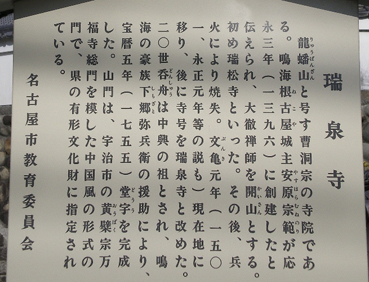 瑞泉寺
龍蟠山と号す曹洞宗の寺院であ
る。鳴海根古屋城主安原宗範が応
永三年(一三九六)に創建したと
伝えられ、大徹禅師を開山とする。
初め瑞松寺といった。その後、兵
火により焼失。文亀元年(一五〇
一、永正元年等の説も)現在地に
移り、後に寺号を瑞泉寺と改めた。
二〇世呑舟は中興の祖とされ、鳴
海の豪族下郷弥兵衛の援助により、
宝暦五年(一七五五)堂宇を完成
した。山門は、宇治市の黄檗宗万
福寺総門を模した中国風の形式の
門で、県の有形文化財に指定され
ている。
名古屋市教育委員会